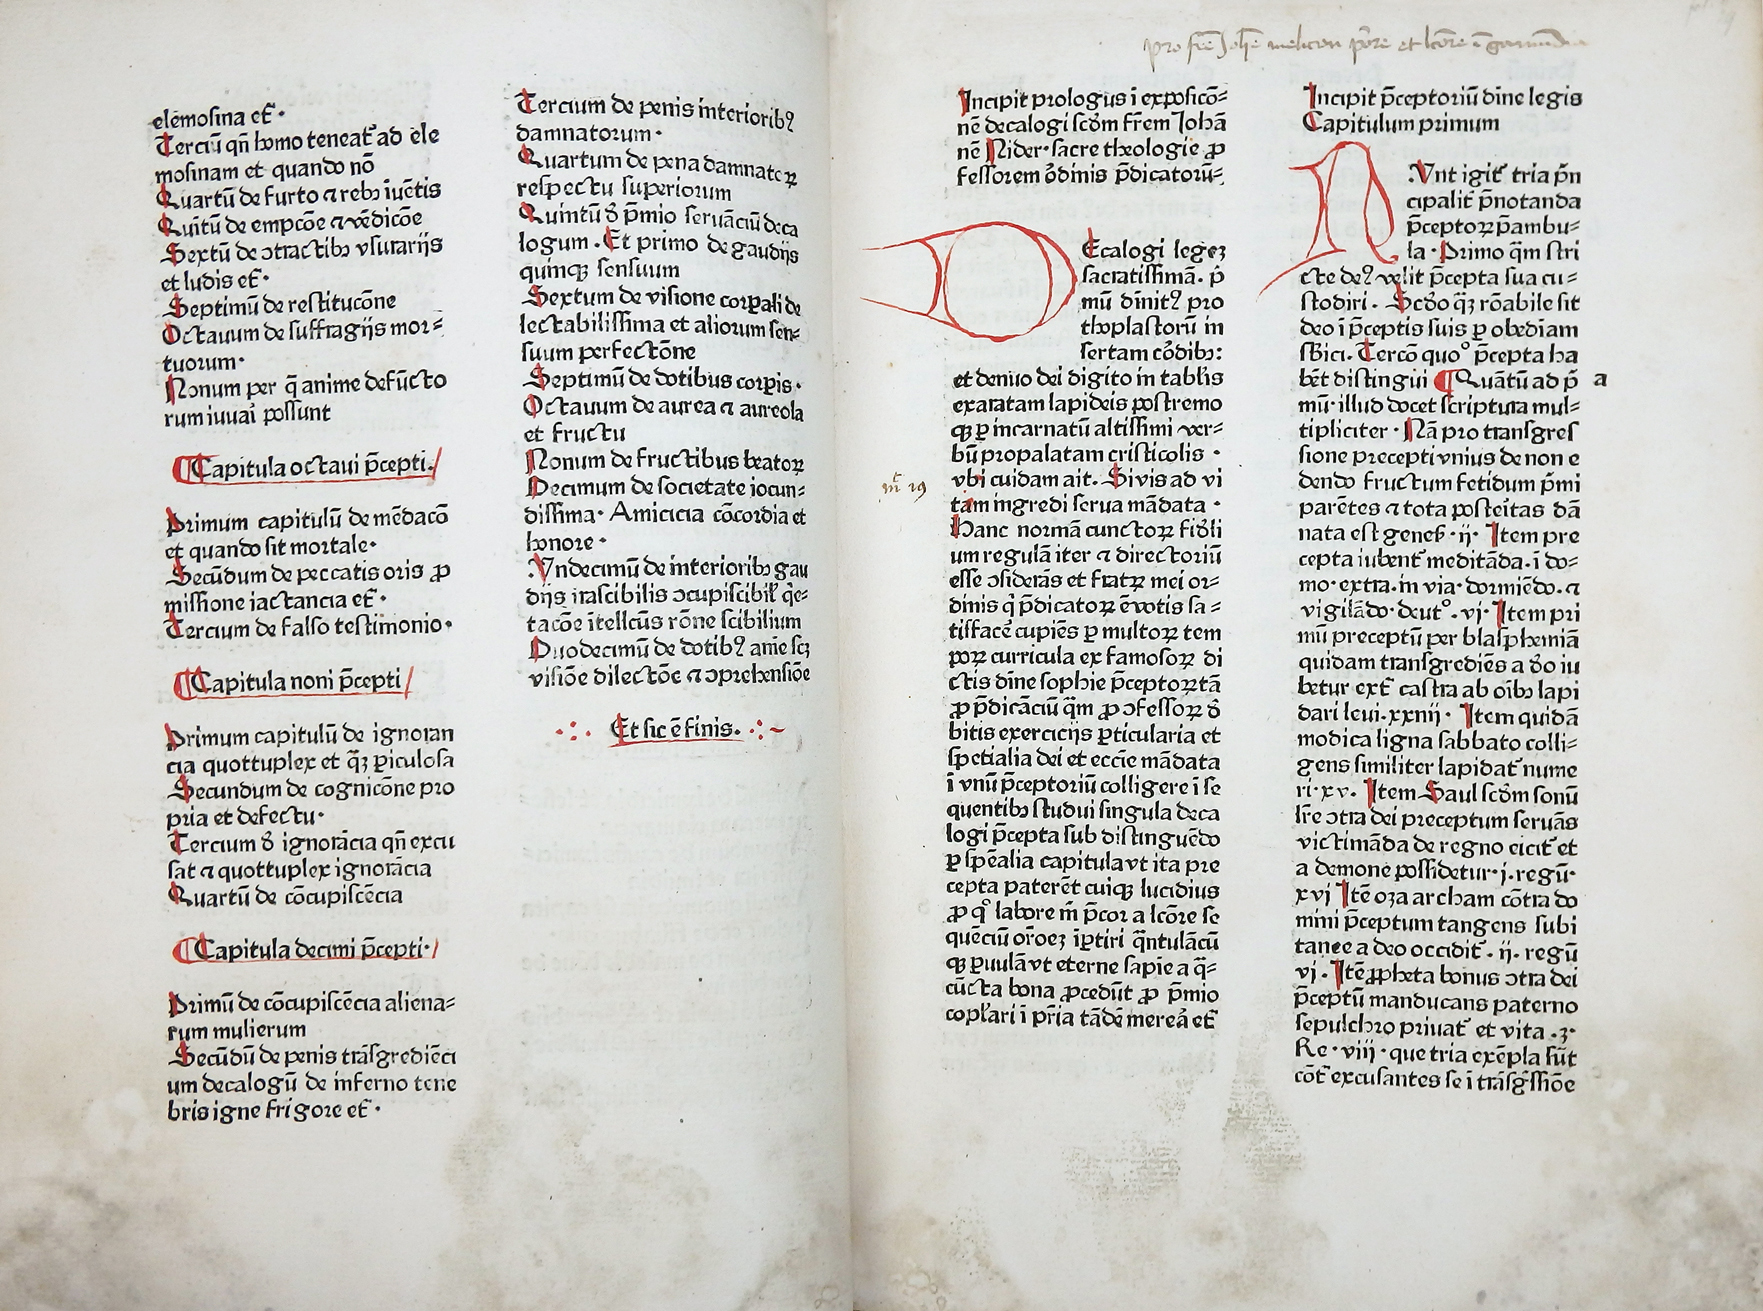 elemosina et̃ ·
Terciũ qñ homo teneat᷒ ad ele
mosinam et quando nõ
Quartũ de furto ⁊ rebꝫ iuẽtis
Quĩtũ de empcõe ⁊ vẽdicõe
Sextũ de ↄtractibꝫ vsurarijs
et ludis et̃·
Septimũ de restitucõne
Octauum de suffragijs mor⸗
tuorum·
Nonum per q̃ anime defũcto
rum iuuai possunt
¶Capitula octaui p̃cepti.
Primum capitulũ de mẽdacõ
et quando sit mortale·
Secũdum de peccatis oris ꝓ
missione iactancia et̃ ·
Tercium de falso testimonio·
¶Capitula noni p̃cepti
Primum capitulũ de ignoran
cia quottuplex et q̃ꝫ ꝑiculosa
Secundum de cognicõne pro
pria et defectu·
Tercium ð ignorãcia qñ excu
sat ⁊ quottuplex ignorãcia
Quartũ de cõcupiscẽcia
¶Capitula decimi p̃cepti·
Primũ de cõcupiscẽcia aliena⸗
rum mulierum
Secũdũ de penis trãsgrediẽci
um decalogũ de inferno tene
bris igne frigore et̃ ·
Tercium de penis interioribꝰ
damnatorum ·
Quartum de pena damnatoꝝ
respectu superiorum
Quintũ ð p̃mio seruãciũ deca
logum . Et primo de gaudijs
quinqꝫ sensuum
Sextum de visione corꝑali de
lectabilissima et aliorum sen⸗
suum perfectõne
Septimũ de dotibus corꝑis·
Octauum de aurea ⁊ aureola
et fructu
Nonum de fructibus beatoꝝ
Decimum de societate iocun⸗
dissima· Amicicia cõcordia et
honore ·
Vndecimũ de interioribꝫ gau
dijs irascibilis ↄcupiscibil᷒ q̃e⸗
tacõe ĩtellcũs rõne scibilium
Duodecimũ de dotibꝰ anĩe scꝫ
visiõe dilectõe ⁊ ↄprehensiõe
Et sic ẽ finis.
pro fr̃e Joh̃e
Incipit prologus ĩ exposicõ⸗
nẽ decalogi scðm fr̃em Johã
nẽ Nider·sacre theologie ꝓ
fessorem õdinis p̃dicatorũ⸗
DEcalogi legeꝫ
sacratissimã. p̃
mũ diuinitꝰ pro
thoplastorũ in
sertam cõdibꝫ:
et denuo dei digito in tablis
exaratam lapideis postremo
qꝫ ꝑ incarnatũ altissimi ver⸗
bũ propalatam cristicolis ·
vbi cuidam ait. Si vis ad vi
tam ingredi serua mãdata ·
Hanc normã cunctoꝝ fiðli
um regulã iter ⁊ directoriũ
esse ↄsiderãs et fratꝝ mei or⸗
dinis q̃ p̃dicatoꝝ ẽ votis sa⸗
tisfacẽ cupiẽs ꝑ multoꝝ tem
poꝝ curricula ex famosoꝝ di
ctis dĩne sophie p̃ceptoꝝ tã
ꝓ p̃dicãciũ q̃m ꝓ ↄfessoꝝ ð
bitis exercicijs ꝑticularia et
spetialia dei et eccĩe mãdata
ĩ vnũ p̃ceptoriũ colligere ĩ se
quentibꝫ studui singula deca
logi p̃cepta sub distinguẽdo
ꝑ spẽalia capitula vt ita pre
cepta paterẽt cuiqꝫ lucidius
ꝓ qᵒ labore m̃ p̃cor a lcõre se
quẽciũ orõeꝫ iꝑtiri q̃ntulãcũ
qꝫ ꝑuulã vt eterne sapie a q̃⸗
cũcta bona ꝓcedũt ꝓ p̃mio
copl᷒ari ĩ pr̃ia tãdẽ mereã et̃
Incipit p̃ceptoriũ diuine legis
Capitulum primum
NVnt igit᷒ tria p̃n
cipalit᷒ p̃notanda
p̃ceptoꝝ p̃ambu⸗
la · Primo q̃m stri
cte deꝰ velit p̃cepta sua cu⸗
stodiri . Scðo qꝫ rõabile sit
deo ĩ p̃ceptis suis ꝑ obediam
sb̃ici. Tercõ quoᵒ p̃cepta ha
bẽt distingui ¶Quãtũ ad p̃
a
mũ· illud docet scriptura mul⸗
tipliciter · Nã pro transgres
sione precepti vnius de non e
dendo fructum fetidum p̃mi
parẽtes ⁊ tota posteitas dã
nata est geneẜ · ij· Item pre
cepta iubent᷒ meditãda . ĩ do⸗
mo·extra.in via·dormiẽdo.⁊
vigilãdo·deutᵒ.vj· Item pri
mũ preceptũ per blasphemiã
quidam transgrediẽs a ðo iu
betur ext᷒ castra ab oĩbꝫ lapi
dari leui.xxiiij· Item quidã
modica ligna sabbato colli⸗
gens similiter lapidat᷒ nume
ri·xv. Item Saul scðm sonũ
lr̃e ↄtra dei preceptum seruãs
victimãda de regno eicit᷒ et
a demone possidetur·j.regũ·
xvj Itẽ oza archam cõtra do
mini p̃ceptum tangens subi
tanee a deo occidit᷒ . ij. regũ
vj . Itẽ ꝓpheta bonus ↄtra dei
p̃ceptũ manducans paterno
sepulchro priuat᷒ et vita .3·
Re·viij·que tria exẽpla sũt
cõt᷒ excusantes se ĩ trãsg̃ssiõe